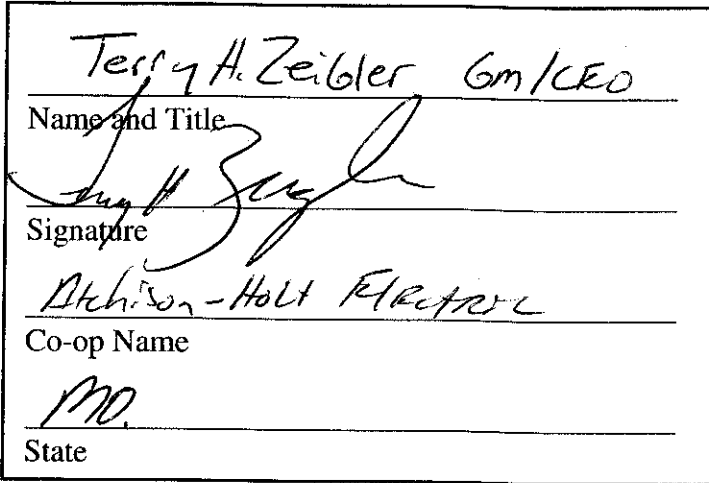 Terry H. Zeigler Gm/CEO
Name and Title
Terry H Zeigler
Signature
Atchison-Holt Electric
Co-op Name
MO.
State